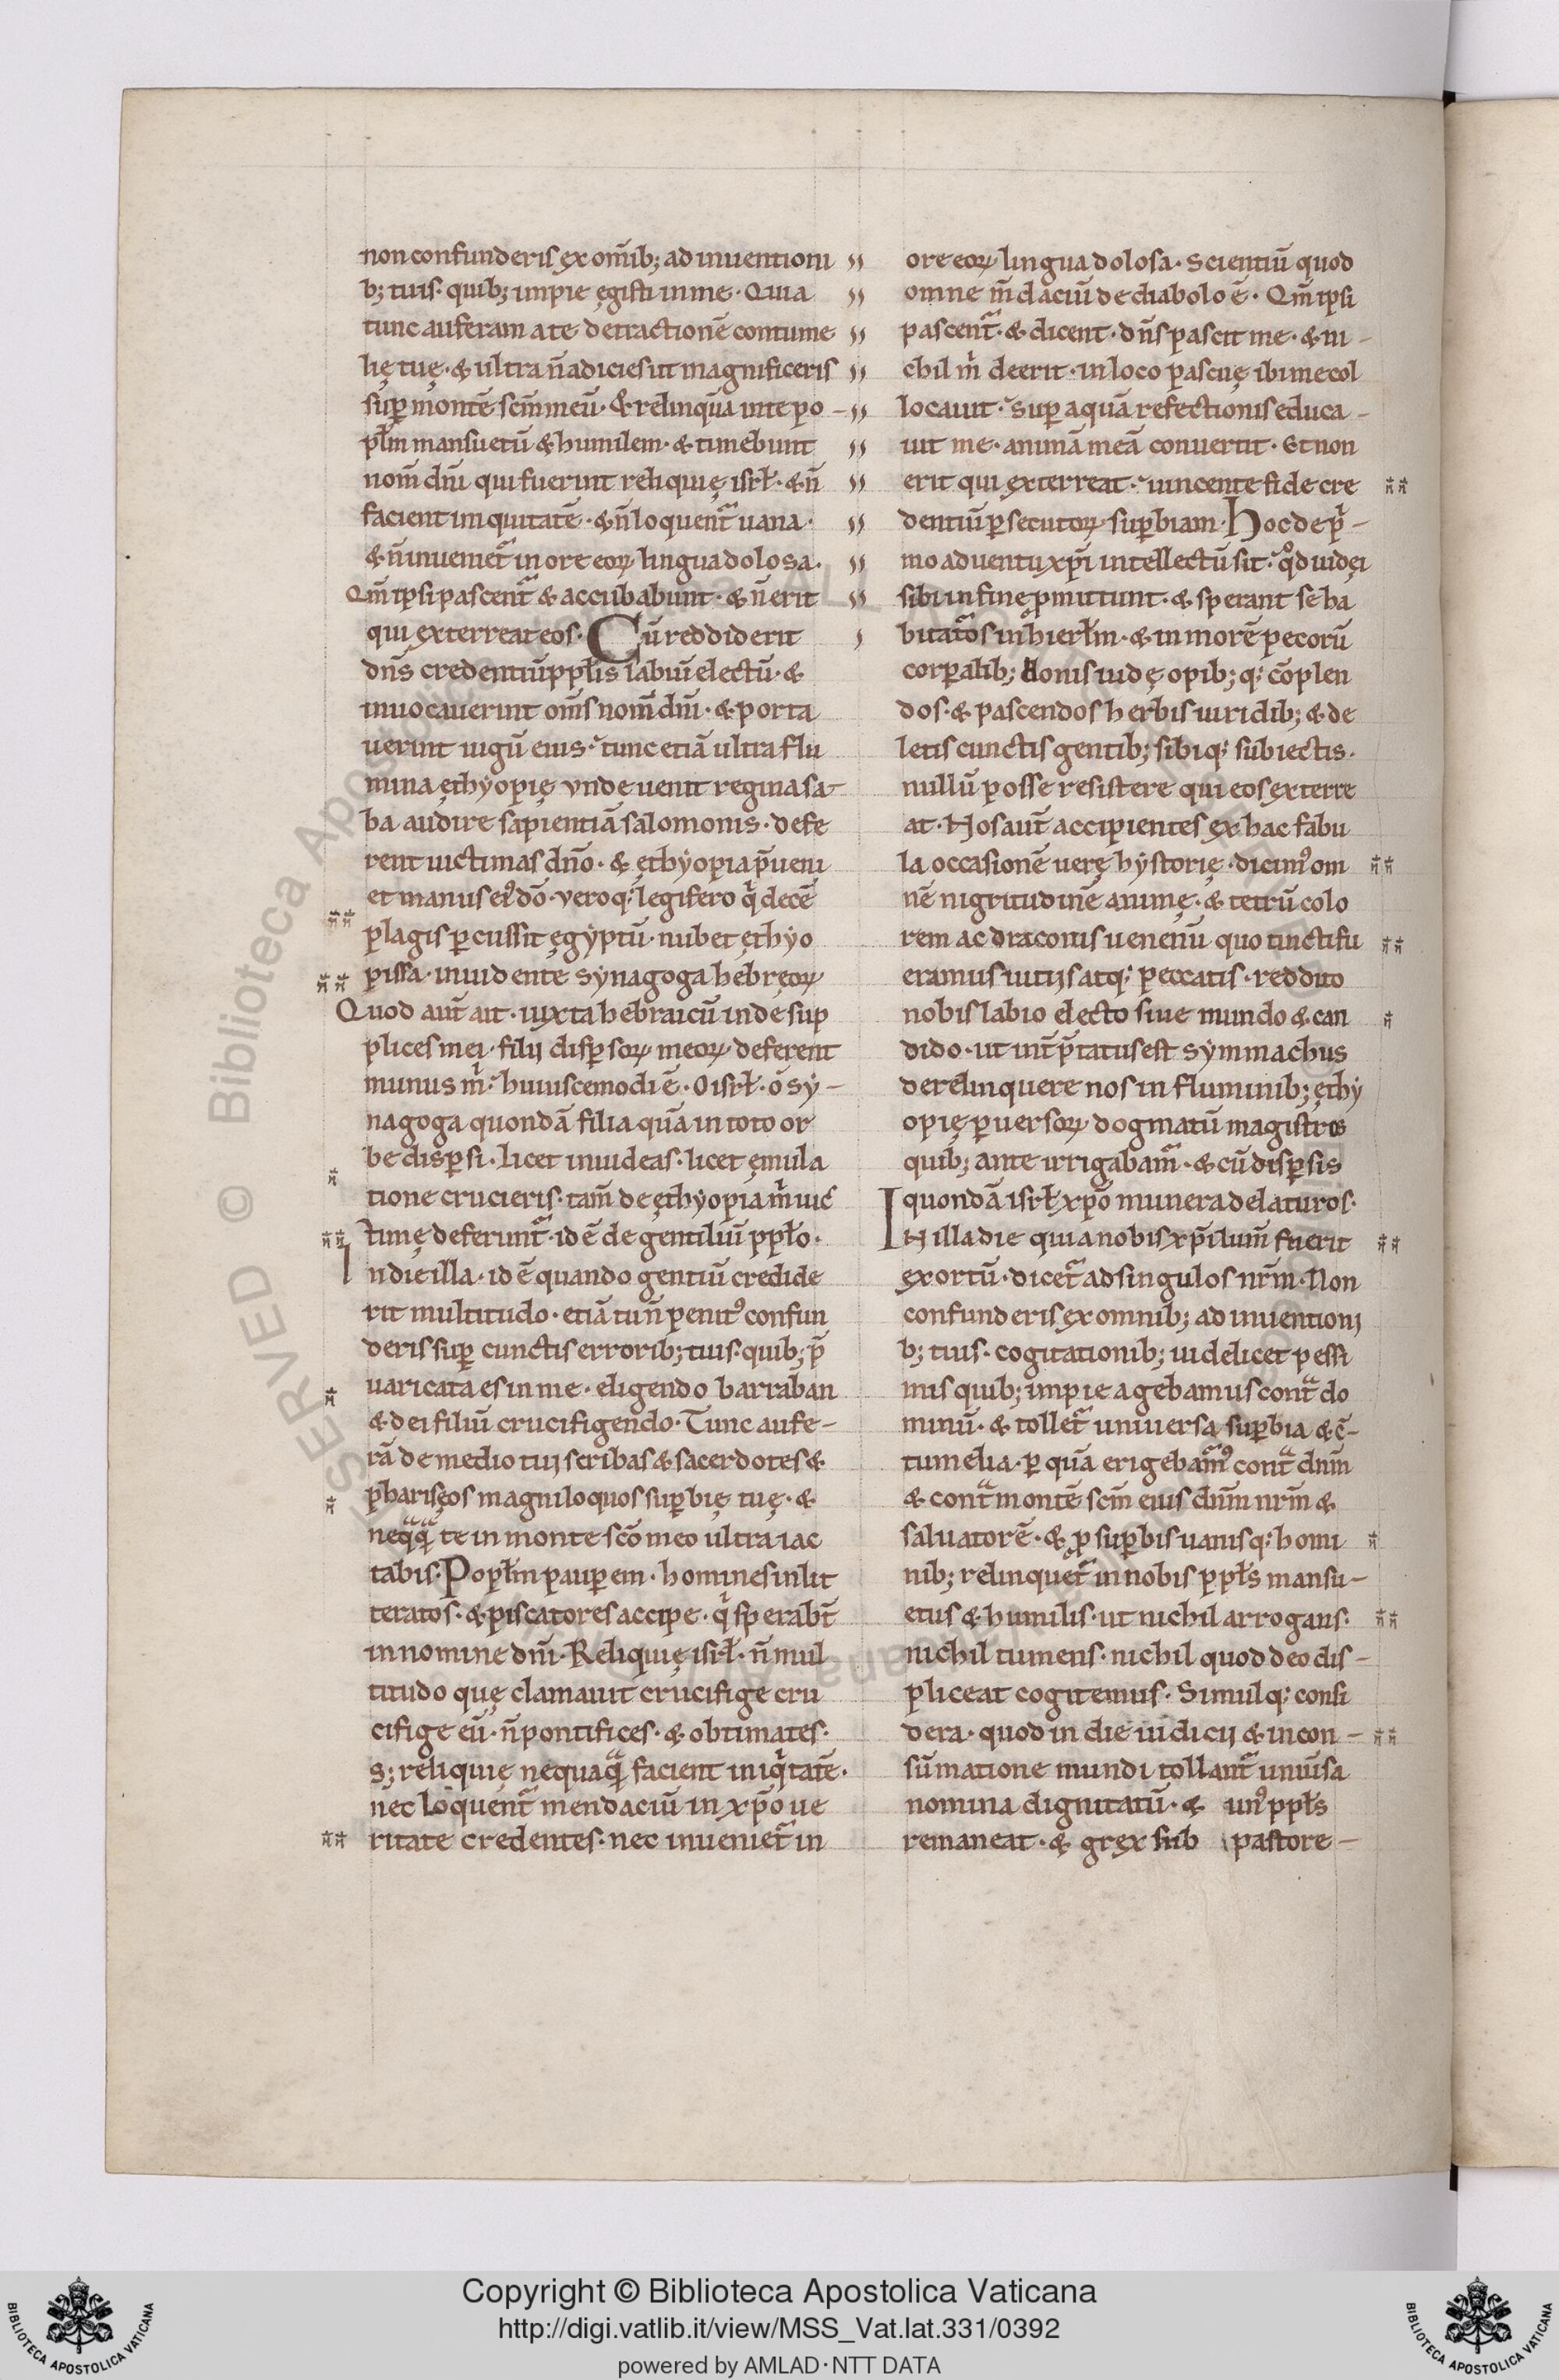 non confunderis ex om̄ib; adinuentioni
b; tuis. quib; impie ęgisti in me. Quia
tunc auferam a te detractionē contume
lię tuę. & ultra n̄ adicies ut magnificeris
suꝑ montē sc̄m meū. & relinquā in te po-
pl̄m mansuetū & humilem. & timebunt
nom̄ dn̄i qui fuerint reliquię isrl̄. & n̄
facient iniquitatē. & n̄ loquent᷑ uana.
& n̄ inueniet᷑ in ore eoꝝ lingua dolosa.
Qm̄ ipsi pascent᷑ & accubabunt. & n̄ erit
qui exterreat eos. Cū reddiderit
dn̄s credentiū ppl̄is labiū electū. &
inuocauerint om̄s nom̄ dn̄i. & porta
uerint iugū eius. tunc etiā ultra flu
mina ęthyopię vnde uenit regina sa-
ba audire sapientiā salomonis. defe
rent uictimas dn̄o. & ęthyopia p̄ueni
et manus ei᷒ dō. veroq; legifero qͥ decē
plagis ꝑcussit ęgyptū. nubet ęthyo
pissa. inuidente synagoga hebręoꝝ
Quod aut̄ ait. iuxta hebraicū inde sup
plices mei. filij disꝑsoꝝ meoꝝ deferent
munus mͥ. huiuscemodi ē. O isrl̄. o sy-
nagoga quondā filia quā in toto or
be disꝑsi. licet inuideas. licet ęmula
tione crucieris. tam̄ de ęthyopia mͥ uic
timę deferunt᷑. id ē de gentiliū ppl̄o.
In die illa. id ē quando gentiū credide
rit multitudo. etiā tu n̄ penit᷒ confun
deris suꝑ cunctis errorib; tuis. quib; p̄
uaricata es in me. eligendo barraban
& dei filiū crucifigendo. Tunc aufe-
rā de medio tui scribas & sacerdotes &
pharisęos magniloquos suꝑbię tuę. &
neqͣqͣ te in monte sc̄o meo ultra iac
tabis. Popl̄m pauꝑem. homines inlit
teratos. & piscatores accipe. qͥ sperabt̄
in nomine dn̄i. Reliquię isrl̄. n̄ mul
titudo quę clamauit crucifige cru
cifige eū. n̄ pontifices. & obtimates.
s; reliquię nequaqͣ facient iniqͥtatē.
nec loquent᷑ mendaciū in xp̄o ue
ritate credentes. nec inueniet᷑ in
ore eoꝝ lingua dolosa. Scientiū quod
omne m̄daciū de diabolo ē. Qm̄ ipsi
pascent᷑. & dicent. dn̄s pascit me. & ni-
chil mͥ deerit. in loco pascuę ibi me col
locauit. Super aquā refectionis educa-
uit me. animā meā conuertit. Et non
erit qui exterreat. uincente fide cre
dentiū ꝑsecutoꝝ suꝑbiam. Hoc de pͥ-
mo aduentu xp̄i intellectū sit. qͦd iudęi
sibi in fine ꝓmittunt. & sperant se ha
bitatͦos in hierl̄m. & in morē pecorū
corꝑalib; donis iudę opib;q; cōplen
dos. & pascendos herbis uiridib; & de
letis cunctis gentib; sibiq; subiectis.
nullū posse resistere qui eos exterre
at. Nos aut̄ accipientes ex hac fabu
la occasionē uerę hystorię. dicim᷒ om
nē nigritudinē animę. & tetrū colo
rem ac draconis uenenū quo tincti fu
eramus uitijs atq; peccatis. reddito
nobis labio electo siue mundo & can
dido. ut int̄p̄tatus est symmachus
derelinquere nos in fluminib; ęthy
opię ꝑuersoꝝ dogmatū magistros
quib; ante irrigabam᷑. & cū disꝑsis
quondā isrl̄ xp̄o munera delaturos.
IN illa die qui a nobis xp̄i lum̄ fuerit
exortū. dicet᷑ ad singulos nr̄m. Non
confunderis ex omnib; adinuentioni
b; tuis. cogitationib; uidelicet pessi
mis quib; impie agebamus contͣ do
minū. & tollet᷑ uniuersa suꝑbia & c̄-
tumelia. ꝑ quā erigebam᷒ contͣ dnm̄
& contͣ montē sc̄m eius dnm̄ nr̄m &
saluatorē. & ꝓ suꝑbis uanisq; homi
nib; relinquet᷑ in nobis ppl̄s mansu-
etus & humilis. ut nichil arrogans.
nichil tumens. nichil quod deo dis-
pliceat cogitemus. Simulq; consi
dera. quod in die iudicij & in con-
sūmatione mundi tollant᷑ uniūsa
nomina dignitatū. & un᷒ ppl̄s
remaneat. & grex sub pastore-
Copyright © Biblioteca Apostolica Vaticana
http://digi.vatlib.it/view/MSS_Vat.lat.331/0392
powered by AMLAD·NTT DATA
BIBLIOTECA APOSTOLICA VATICANA
BIBLIOTECA APOSTOLICA VATICANA